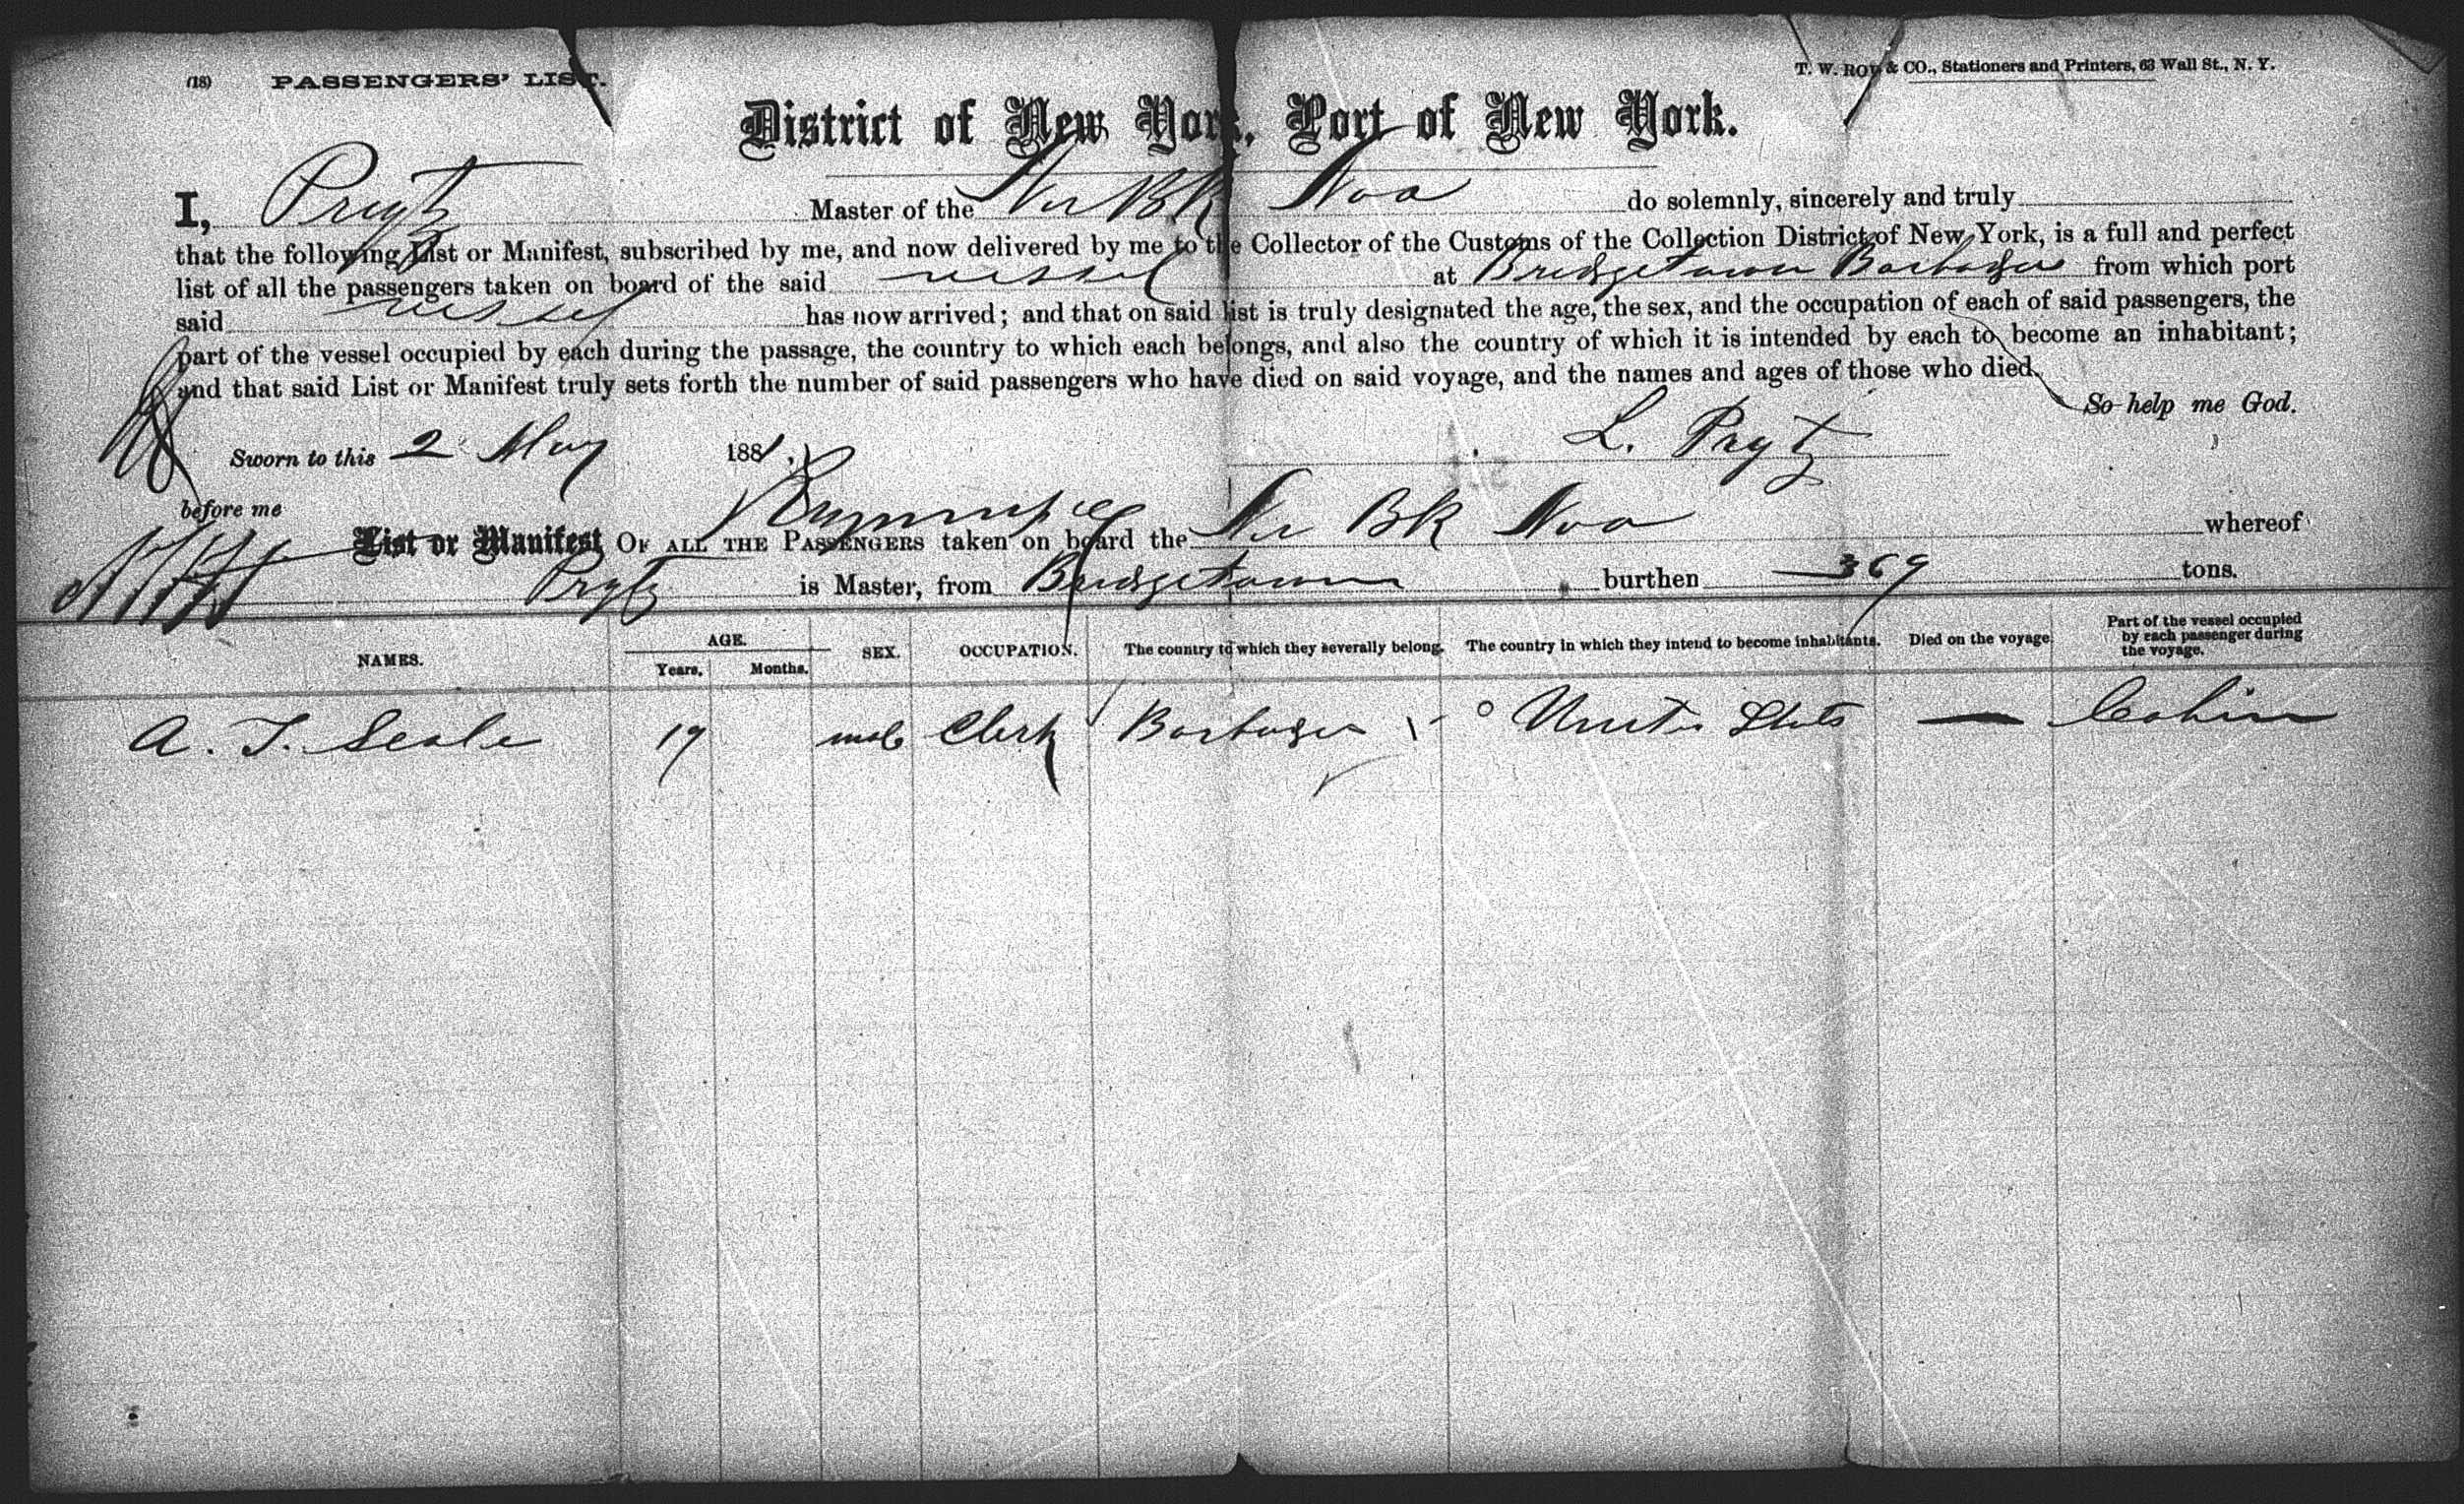 (18) PASSENGERS' LIST. T. W. ROY & CO., Stationers and Printers, 63 Wall St., N. Y.
District of New York, Port of New York.
I, Prytz Master of the Nor Bk Noa do solemnly, sincerely and truly
that the following List or Manifest, subscribed by me, and now delivered by me to the Collector of the Customs of the Collection District of New York, is a full and perfect
list of all the passengers taken on board of the said vessel at Bridgetown Barbados from which port
said vessel has now arrived; and that on said list is truly designated the age, the sex, and the occupation of each of said passengers, the
part of the vessel occupied by each during the passage, the country to which each belongs, and also the country of which it is intended by each to become an inhabitant;
and that said List or Manifest truly sets forth the number of said passengers who have died on said voyage, and the names and ages of those who died.
So help me God.
Sworn to this 2 May 1881. L. Prytz
before me
List or Manifest OF ALL THE PASSENGERS taken on board the Nr Bk Noa whereof
Prytz is Master, from Bridgetown burthen 369 tons.
NAMES. AGE. Years. Months. SEX. OCCUPATION. The country to which they severally belong. The country in which they intend to become inhabitants. Died on the voyage. Part of the vessel occupied by each passenger during the voyage.
A. T. Seale 19 male Clerk Barbados United States — Cabin